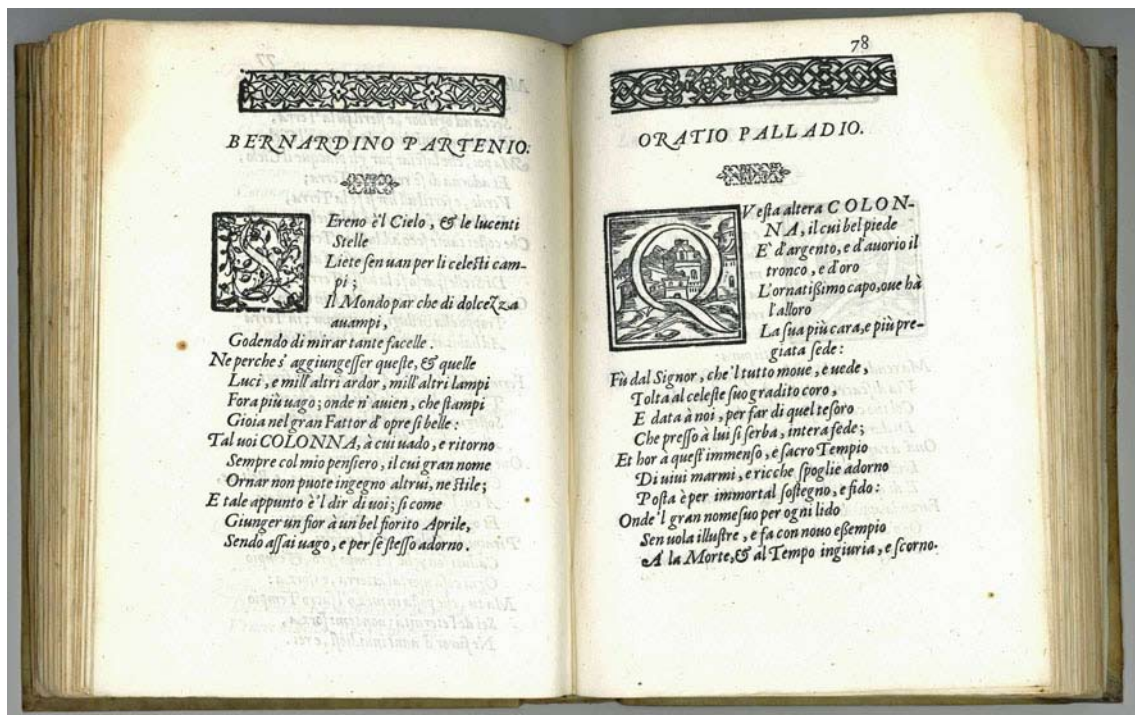 BERNARDINO PARTENIO.
SEreno è'l Cielo, & le lucenti
Stelle
Liete sen uan per li celesti cam-
pi;
Il Mondo par che di dolcezza
auampi,
Godendo di mirar tante facelle.
Ne perche s'aggiungesser queste, & quelle
Luci, e mill'altri ardor, mill'altri lampi
Fora più uago; onde n'auien, che stampi
Gioia nel gran Fattor d'opre si belle:
Tal uoi COLONNA, à cui uado, e ritorno
Sempre col mio pensiero, il cui gran nome
Ornar non puote ingegno altrui, ne stile;
E tale appunto è'l dir di uoi; si come
Giunger un fior à un bel fiorito Aprile,
Sendo assai uago, e per se stesso adorno.
78
ORATIO PALLADIO.
QVesta altera COLON-
NA, il cui bel piede
E' d'argento, e d'auorio il
tronco, e d'oro
L'ornatißimo capo, oue hà
l'alloro
La sua più cara, e più pre-
giata sede:
Fù dal Signor, che'l tutto moue, e uede,
Tolta al celeste suo gradito coro,
E data à noi, per far di quel tesoro
Che presso à lui si serba, intera fede;
Et hor à quest'immenso, e sacro Tempio
Di uiui marmi, e ricche spoglie adorno
Posta è per immortal sostegno, e fido:
Onde'l gran nome suo per ogni lido
Sen uola illustre, e fa con nouo eßempio
A la Morte, & al Tempo ingiuria, e scorno.